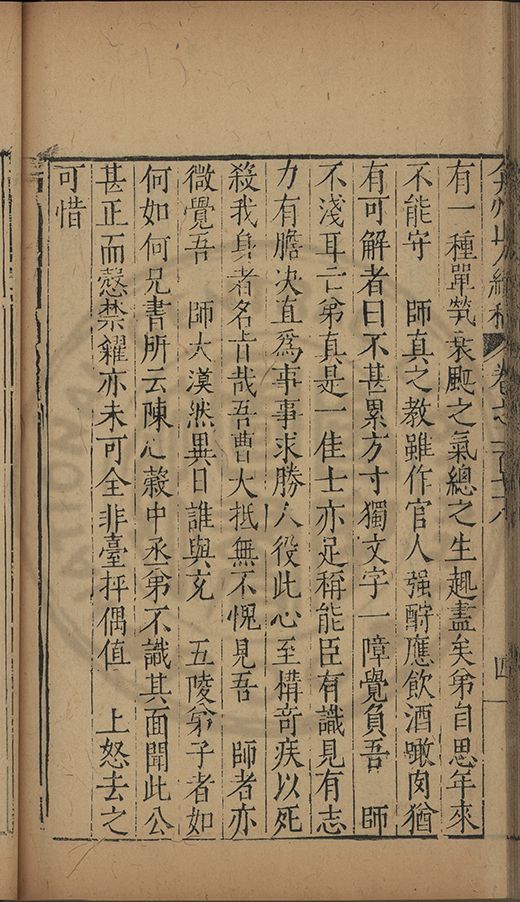 有一種單煢衰颯之氣總之生趣盡矣弟自思年來
不能守　師真之教雖作官人强酬應飲酒噉肉猶
有可解者曰不甚累方寸獨文字一障覺負吾　師
不淺耳亡弟真是一佳士亦足稱能臣有識見有志
力有膽决直爲事事求勝人役此心至構奇疾以死
殺我身者名旨哉吾曹大抵無不愧見吾　師者亦
微覺吾　師大漠然異日誰與文　五陵弟子者如
何如何兄書所云陳心榖中丞弟不識其面聞此公
甚正而愨禁糴亦未可全非臺抨偶值　上怒去之
可惜
弇州山人續稿　卷之一百
四